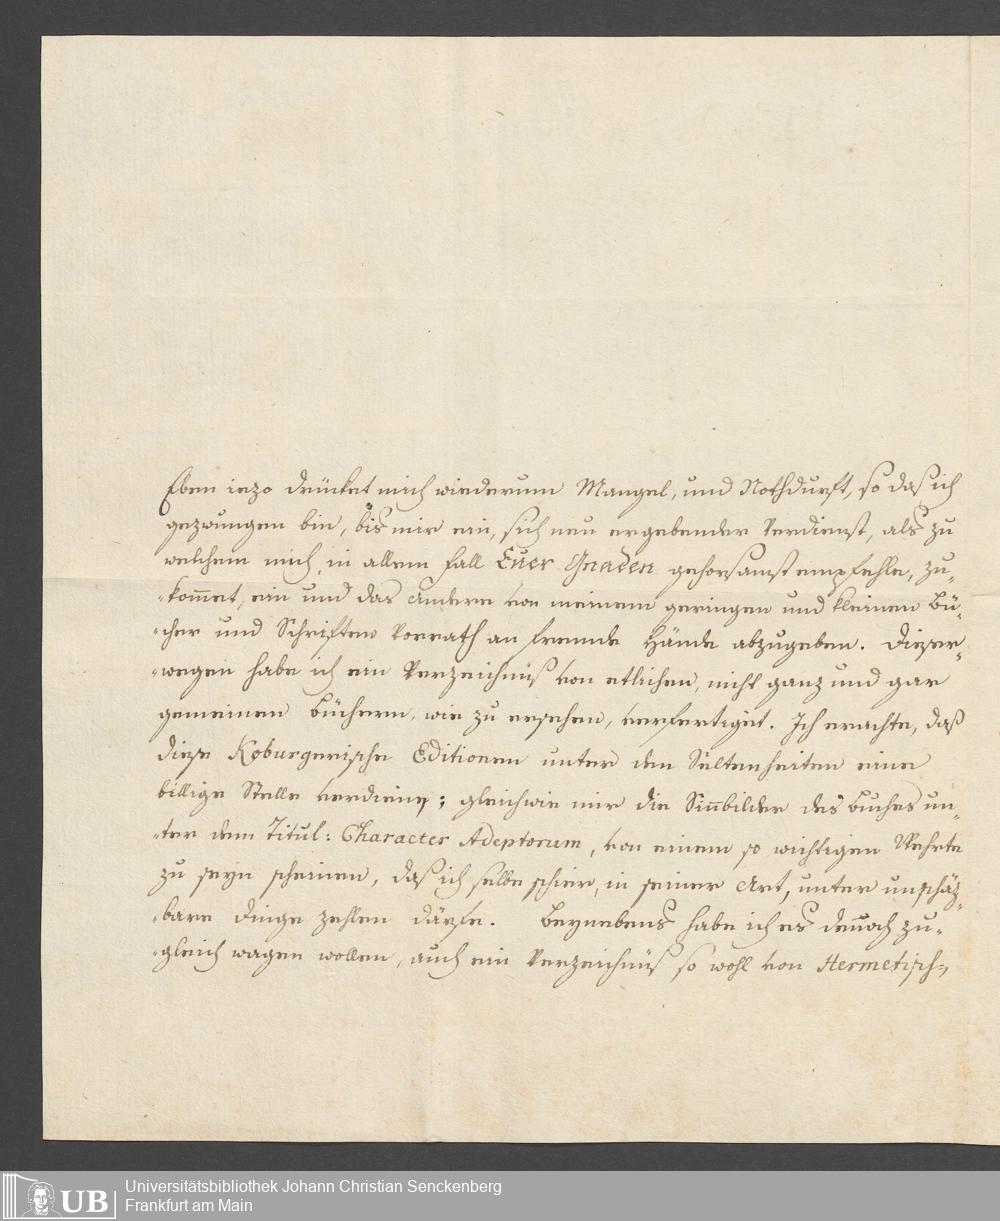 Eben iezo drücket mich wiederum Mangel, und Nothdurft, so daß ich
gezwungen bin, bis mir ein, sich neu ergebender Verdienst, als zu
welchem mich, in allem fall Euer Gnaden gehorsamst empfehle, zu„
„kom̅et, ein und das andere von meinem geringen und kleinen Bü„
„cher und Schriften Vorrath an fremde Hände abzugeben. Dieser„
„wegen habe ich ein Verzeichnüß von etlichen, nicht ganz und gar
gemeinen Büchern, wie zu ersehen, verfertiget. Ich erachte, daß
diese Koburgerische Editionen unter den Seltenheiten eine
billige Stelle verdienen; gleichwie mir die Sin̅bilder des Buches un„
„ter dem Titul: Character Adeptorum, von einem so wichtigen Wehrte
zu seyn scheinen, daß ich selbe schier, in seiner Art, unter unschäz„
„bare Dinge zehlen därfe. Beynebens habe ich es den̅och zu„
„gleich wagen wollen, auch ein Verzeichnüß so wohl von Hermetisch„
Universitätsbibliothek Johann Christian Senckenberg
Frankfurt am Main
UB